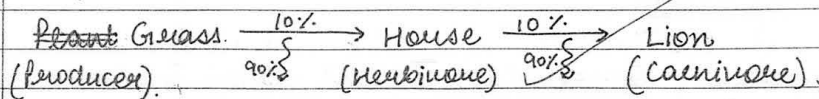 10% 10%
Plant Grass. → Horse → Lion
90% 90%
(Producer). (Herbivore) (Carnivore).